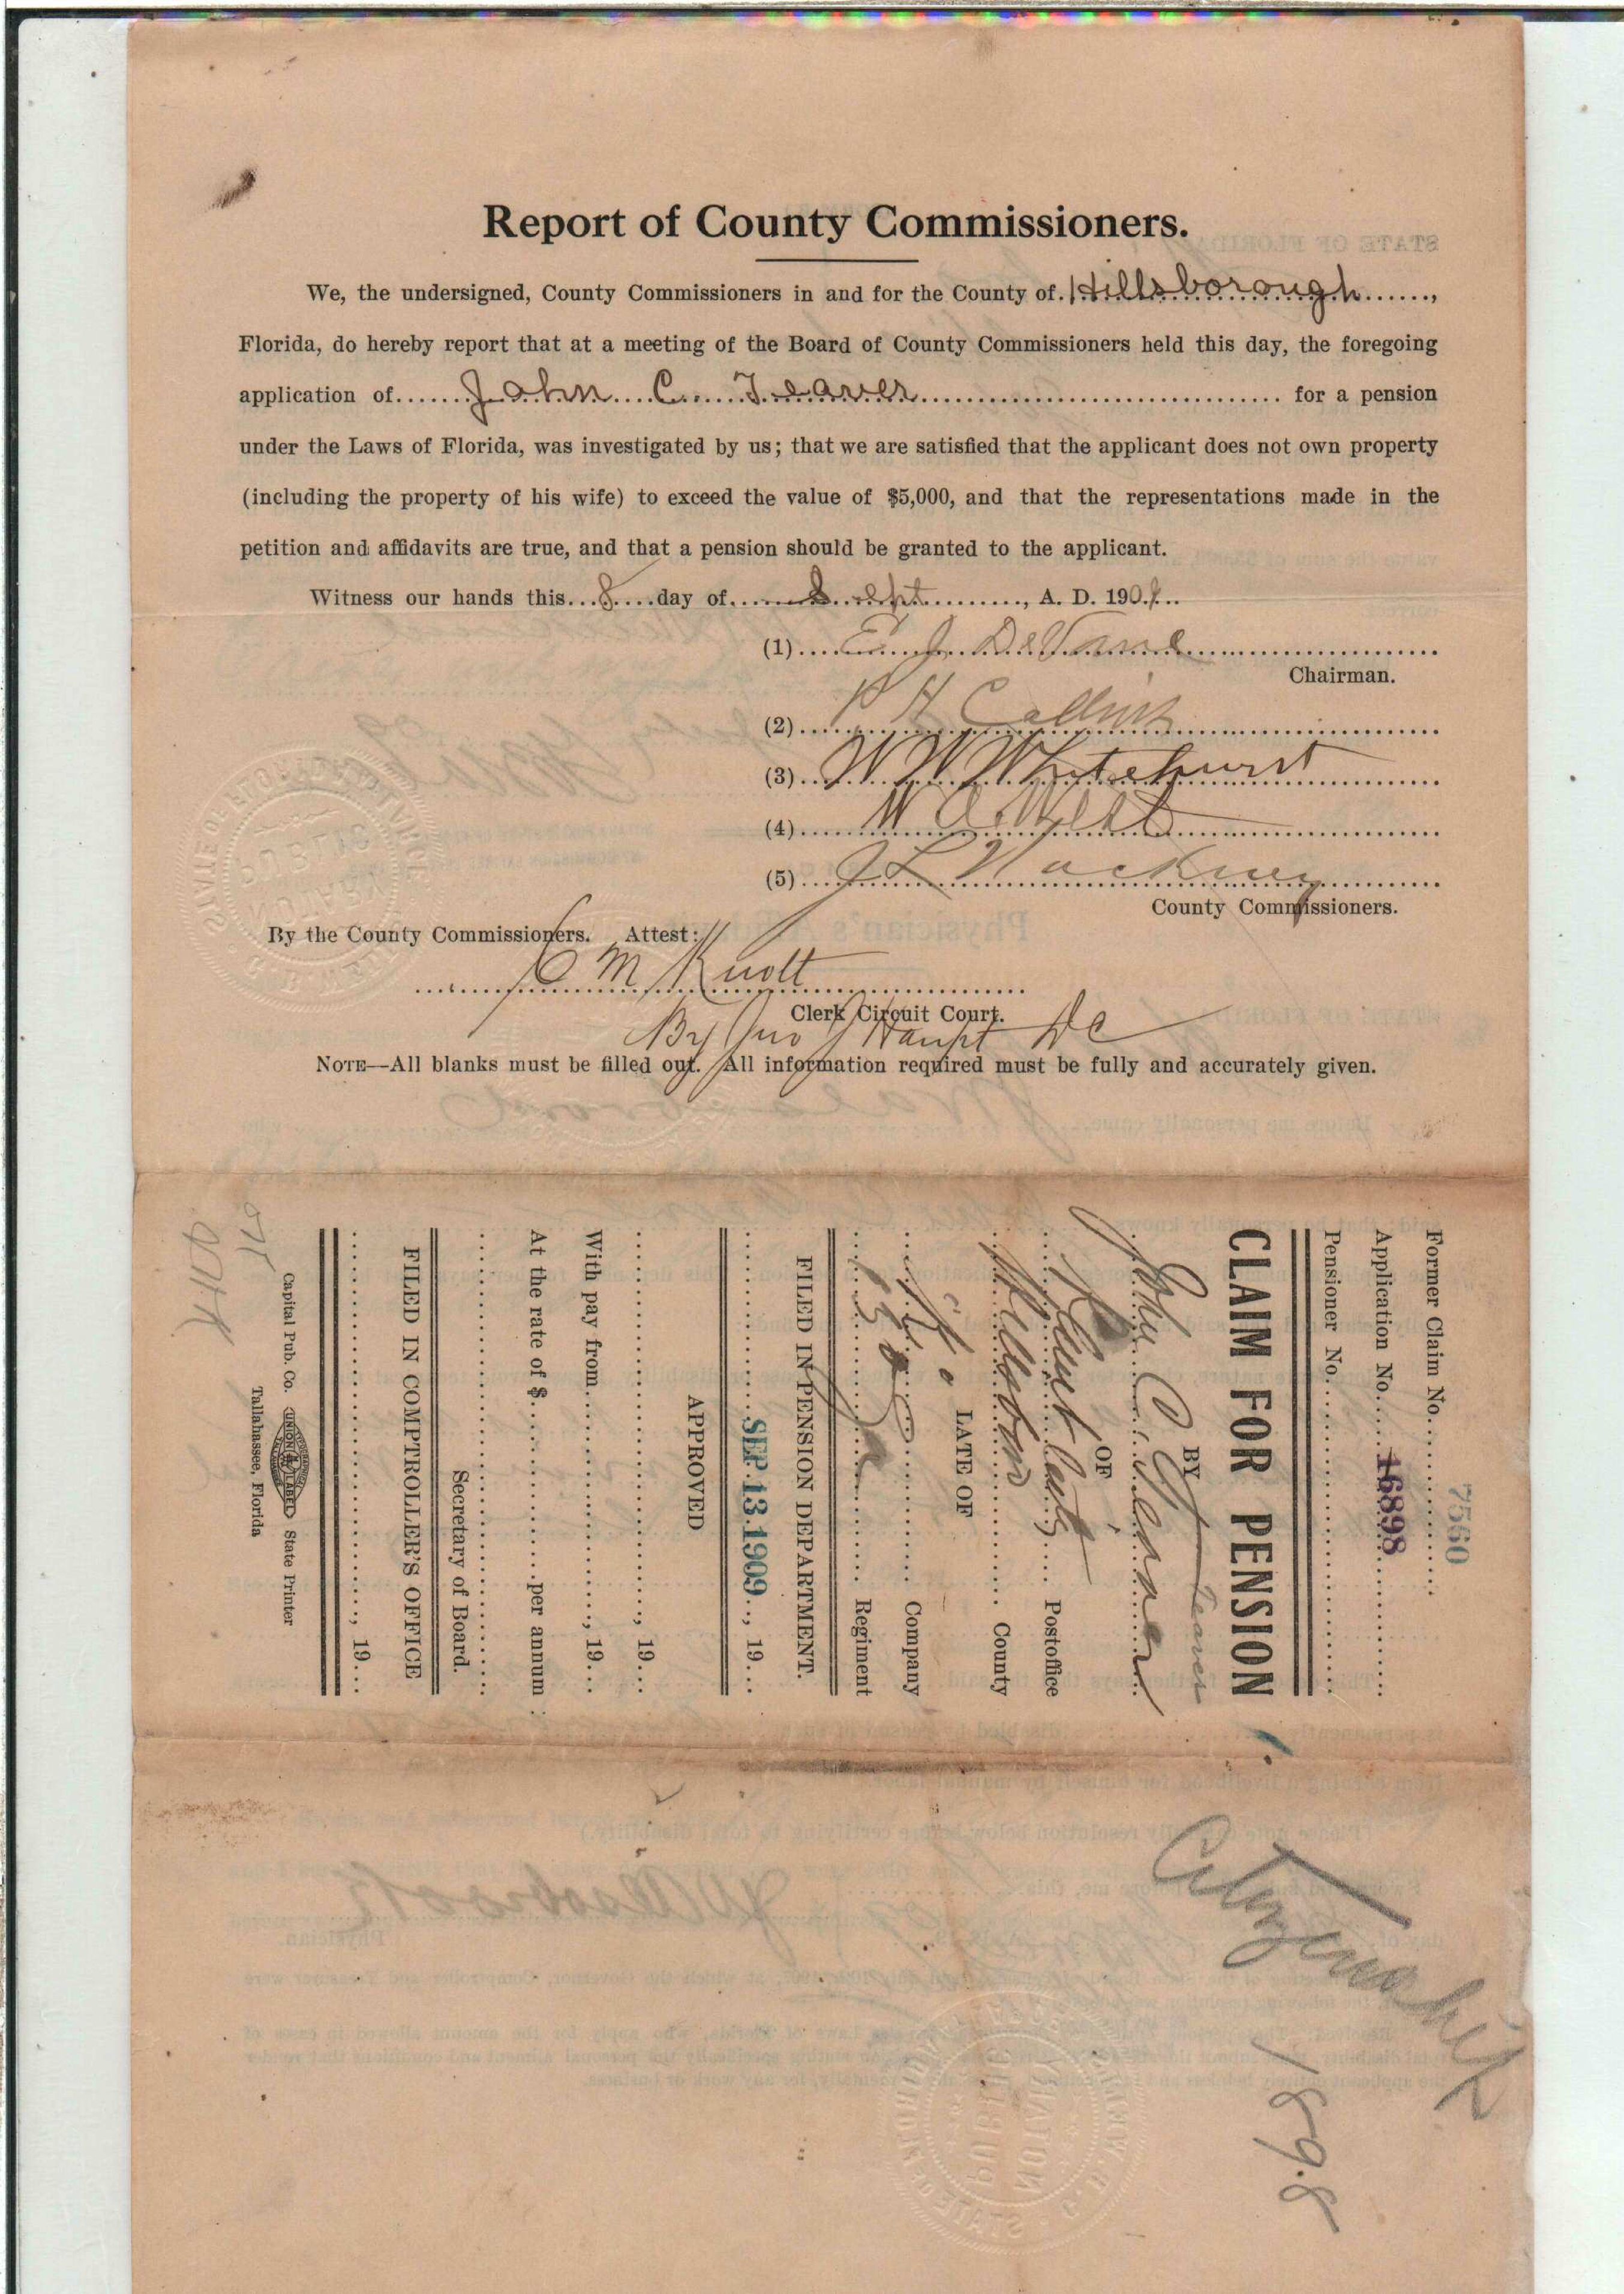 Report of County Commissioners.
We, the undersigned, County Commissioners in and for the County of Hillsborough,
Florida, do hereby report that at a meeting of the Board of County Commissioners held this day, the foregoing
application of John C. Teaver for a pension
under the Laws of Florida, was investigated by us; that we are satisfied that the applicant does not own property
(including the property of his wife) to exceed the value of $5,000, and that the representations made in the
petition and affidavits are true, and that a pension should be granted to the applicant.
Witness our hands this 8 day of Sept, A. D. 190
(1) E J DeVane
Chairman.
(2) H Collins
(3) W W Whitehurst
(4) W A West
(5) J L Hackney
County Commissioners.
By the County Commissioners. Attest:
C M Knott
Clerk Circuit Court.
By Jno Haupt DC
NOTE—All blanks must be filled out. All information required must be fully and accurately given.
7560
Former Claim No.
Application No. 16898
Pensioner No.
CLAIM FOR PENSION
BY Teaver
John C. Teaver
OF
Plant City Postoffice
Hillsboro County
LATE OF
Company
53 Ga Regiment
FILED IN PENSION DEPARTMENT.
SEP 13 1909, 19
APPROVED
, 19
With pay from , 19
At the rate of $ per annum
Secretary of Board.
FILED IN COMPTROLLER'S OFFICE
, 19
Capital Pub. Co. State Printer
Tallahassee, Florida
Citizenship
1898